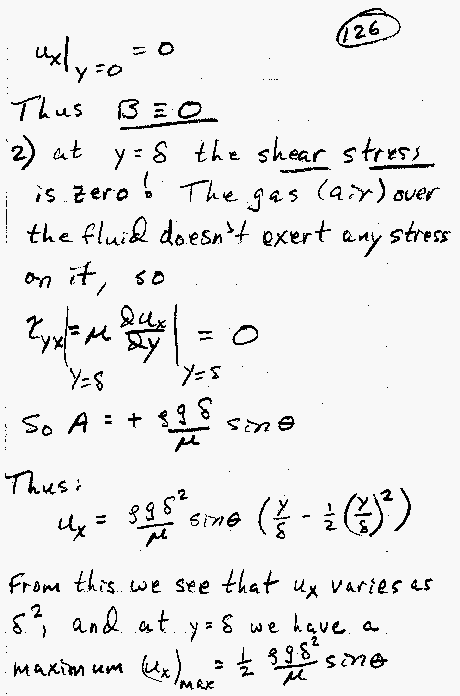 126
u_x|_{y=0} = 0
Thus B ≡ 0
2) at y=δ the shear stress
is zero! The gas (air) over
the fluid doesn't exert any stress
on it, so
τ_{yx}|_{y=δ} = μ ∂u_x/∂y|_{y=δ} = 0
So A = + ρgδ/μ sin θ
Thus:
u_x = ρgδ²/μ sin θ (y/δ - ½(y/δ)²)
From this we see that u_x varies as
δ², and at y=δ we have a
maximum (u_x)_{max} = ½ ρgδ²/μ sin θ